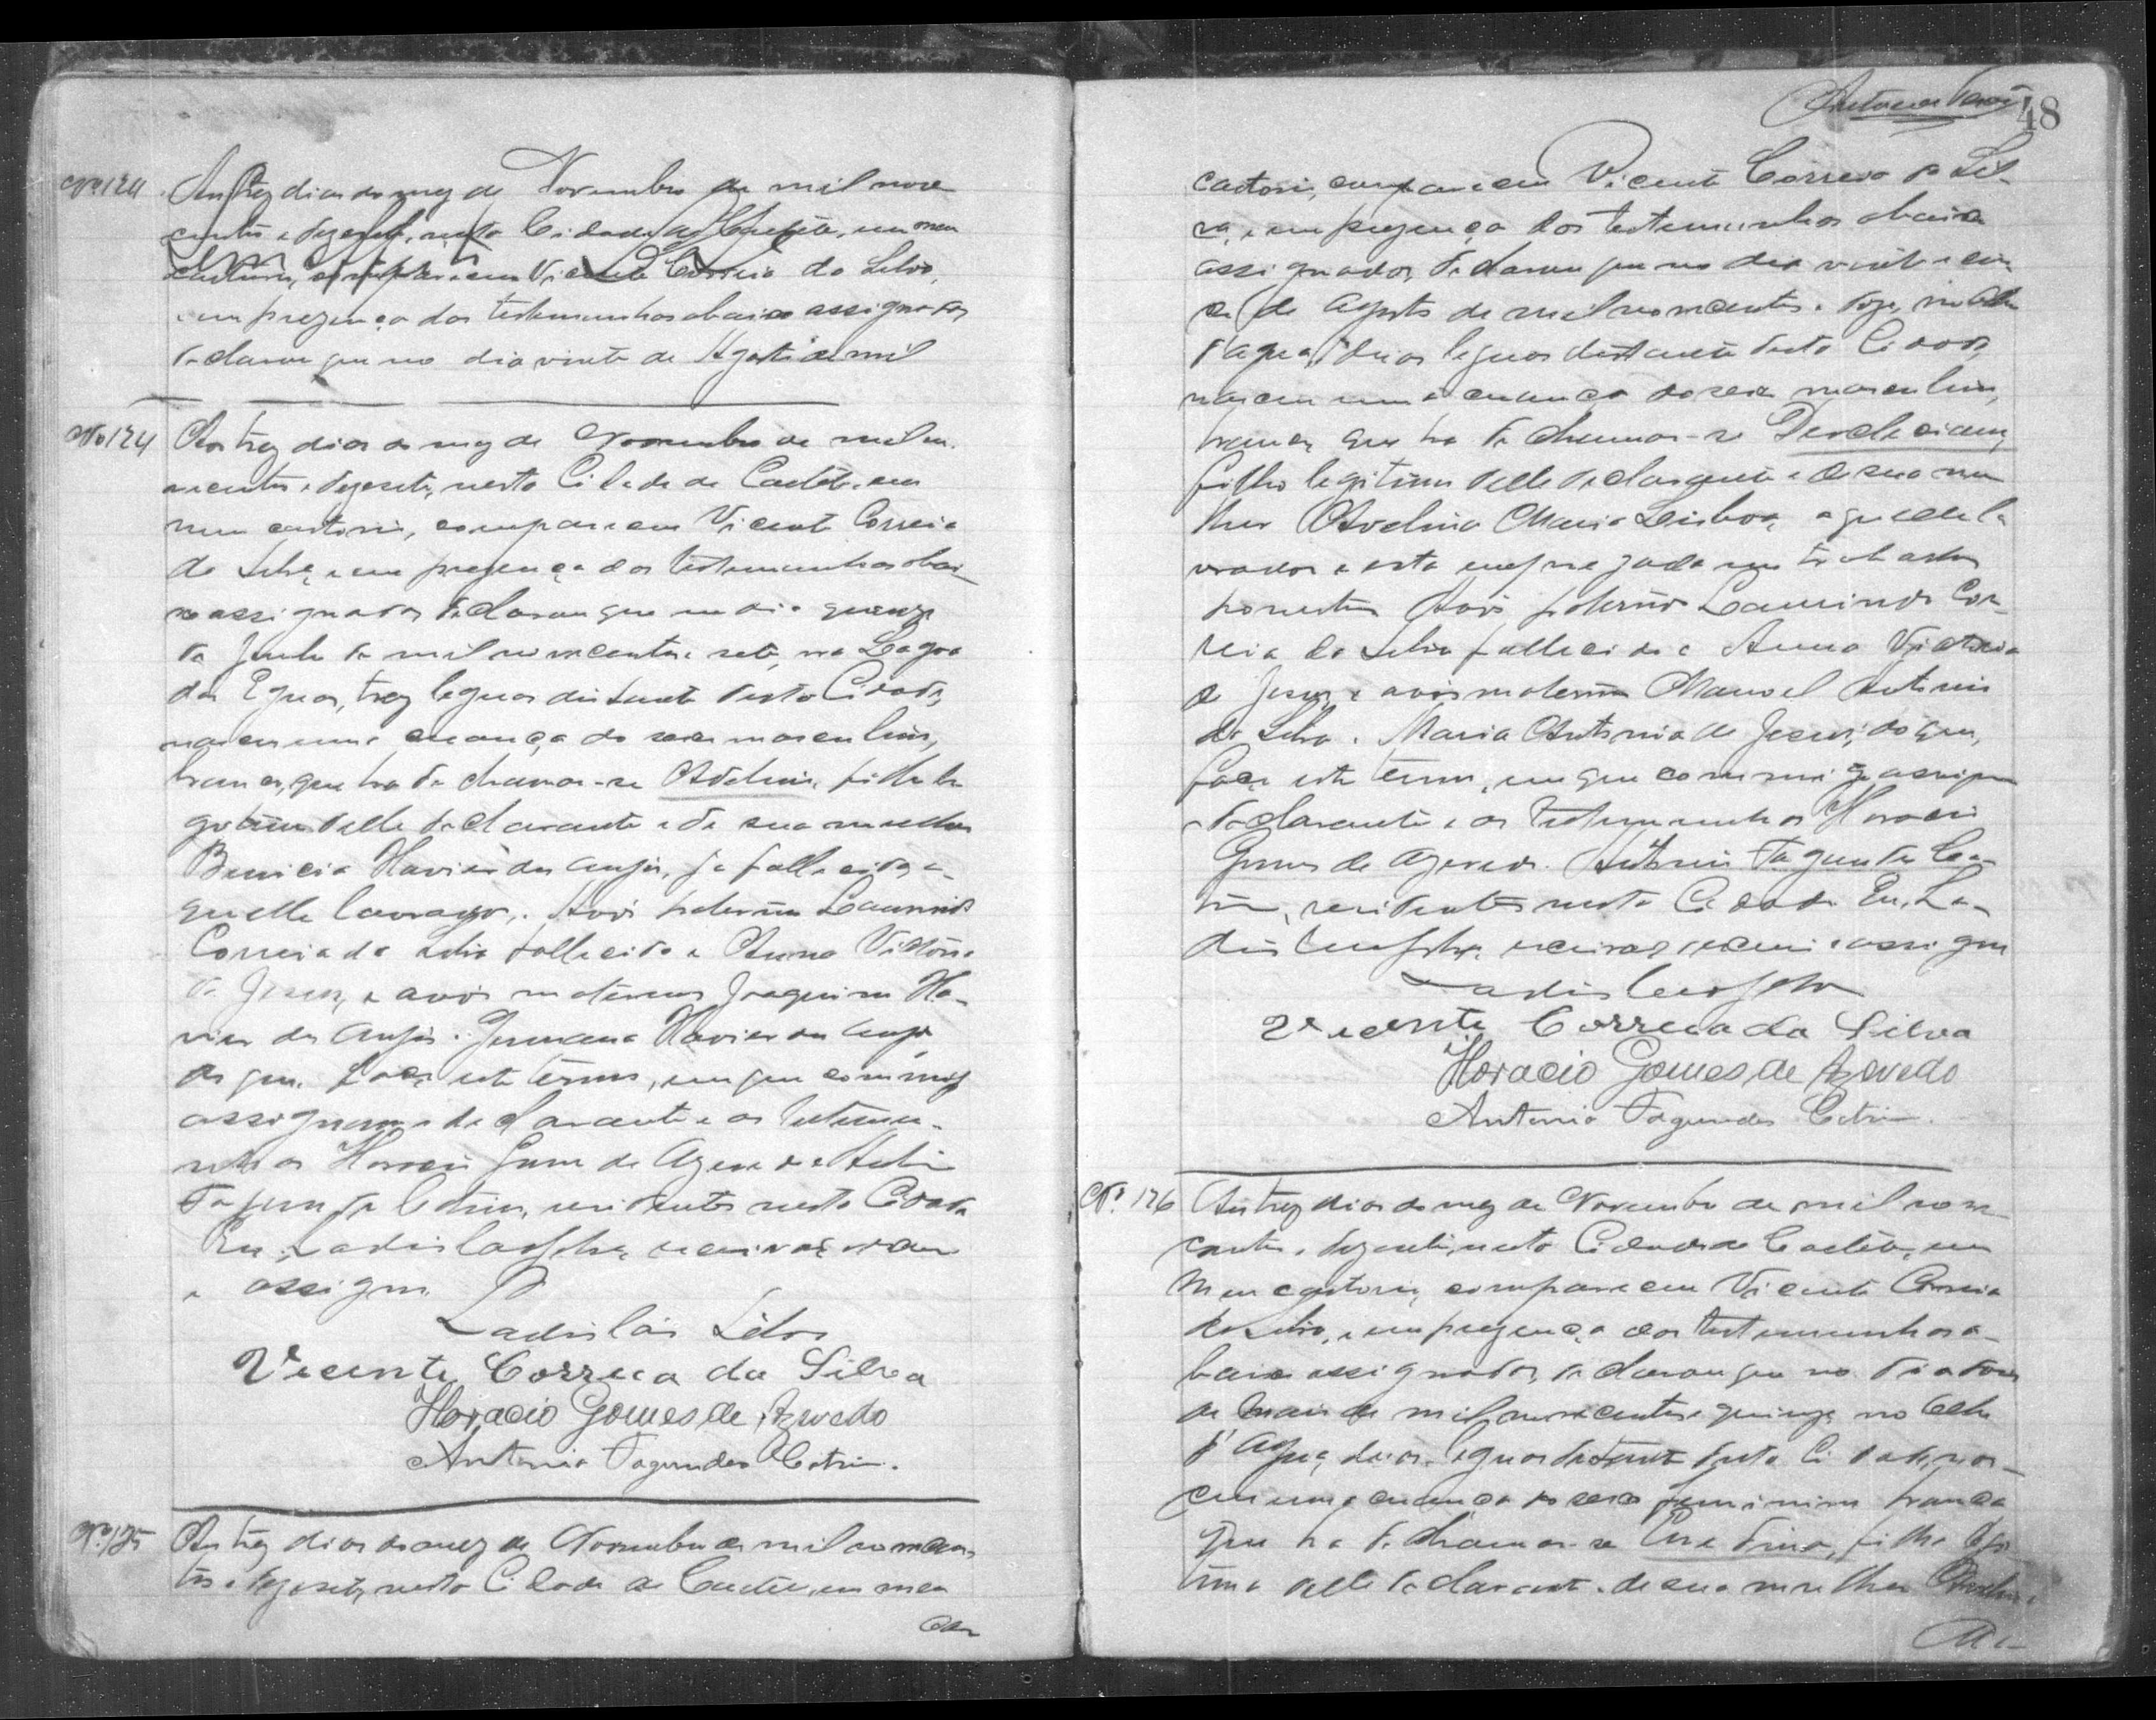 Nº 124 Aos trez dias do mez de Novembro de mil nove
centos e dezesete, nesta Cidade de Caeteté, em meu
cartorio, compareceu Vicente Correia da Silva,
e em prezença das testemunhas abaixo assignadas
declarou que no dia vinte de Agosto de mil
Sem effeito
Nº 124 Aos trez dias do mez de Novembro de mil no-
vecentos e dezesete, nesta Cidade de Caeteté, em
meu cartorio, compareceu Vicente Correia
da Silva, e em prezença das testemunhas abai-
xo assignadas declarou que no dia quinze
de Junho de mil novecentos e sete, na Lagoa
das Eguas, trez leguas distante desta Cidade,
nasceu uma criança do sexo masculino,
branca, que ha de chamar-se Adelino, filho le-
gitimo delle declarante e de sua mulher
Benicia Xavier dos Anjos, ja fallecida, a-
quelle lavrador. Avós paternos Laurindo
Correia da Silva fallecido e Anna Victoria
de Jesus, e avós maternos Joaquim Xa-
vier dos Anjos e Germana Xavier dos Anjos
do que faço este termo, em que commigo
assignam o declarante e as testemu-
nhas Horacio Gomes de Azevedo e Antonio
Fagundes Cotrim, residentes nesta Cidade
Eu, Ladislau Silva, escrivão escrevi
e assigno.
Ladislau Silva
Vicente Correia da Silva
Horacio Gomes de Azevedo
Antonio Fagundes Cotrim.
Nº 125 Aos trez dias do mez de Novembro de mil novecen-
tos e dezesete, nesta Cidade de Caeteté, em meu
car
48
cartorio, compareceu Vicente Correia da Sil-
va, e em prezença das testemunhas abaixo
assignadas, declarou que no dia vinte e cin-
co de Agosto de mil novecentos e doze, no Olho
d'agua, duas leguas distante desta Cidade,
nasceu uma criança do sexo masculino,
branca, que ha de chamar-se
filho legitimo delle declarante e de sua mu-
lher Avelina Maria Lisboa, aquelle la-
vrador e esta empregada em trabalhos
honestos. Avós paternos Laurindo Cor-
reia da Silva fallecido e Anna Victoria
de Jesus, e avós maternos Manoel Antonio
da Silva e Maria Antonia de Jesus, do que,
faço este termo, em que commigo assignam
o declarante e as testemunhas Horacio
Gomes de Azevedo e Antonio Fagundes Co-
trim, residentes nesta Cidade. Eu, La-
dislau Silva, escrivão escrevi e assigno
Ladislau Silva
Vicente Correia da Silva
Horacio Gomes de Azevedo
Antonio Fagundes Cotrim.
Nº 126 Aos trez dias do mez de Novembro de mil nove-
centos e dezesete, nesta Cidade de Caeteté, em
meu cartorio, compareceu Vicente Correia
da Silva, e em prezença das testemunhas a-
baixo assignadas, declarou que no dia doze
de Maio de mil novecentos e quinze no Olho
d'Agua, duas leguas distante desta Cidade, nas-
ceu uma criança do sexo feminino branca
que ha de chamar-se filha legi-
tima delle declarante e de sua mulher Avelina